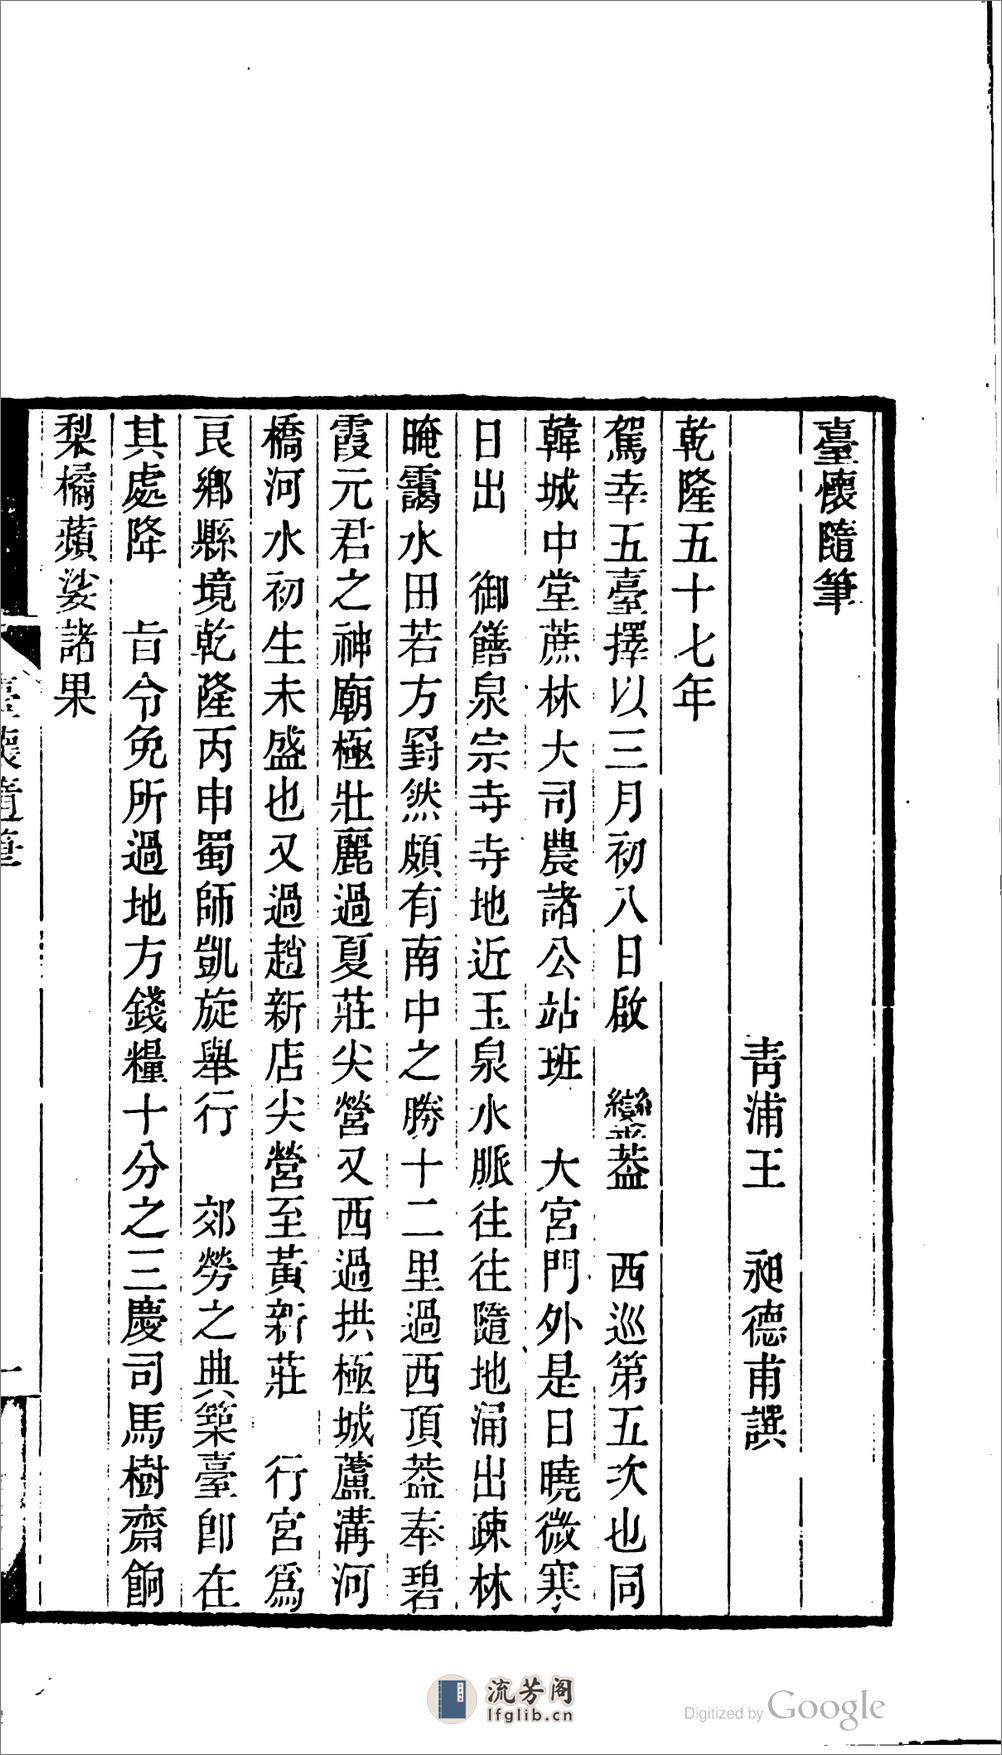 臺懷隨筆
青浦王　昶德甫譔
乾隆五十七年
駕幸五臺擇以三月初八日啟　鑾葢　西巡第五次也同
韓城中堂蔗林大司農諸公站班　大宮門外是日曉微寒
日出　御饍泉宗寺寺地近玉泉水脈往往隨地涌出疎林
晻靄水田若方罫然頗有南中之勝十二里過西頂葢奉碧
霞元君之神廟極壯麗過夏莊尖營又西過拱極城蘆溝河
橋河水初生未盛也又過趙新店尖營至黃新莊　行宮爲
良鄉縣境乾隆丙申蜀師凱旋舉行　郊勞之典築臺卽在
其處降　旨令免所過地方錢糧十分之三慶司馬樹齋餉
梨橘蘋婆諸果
臺懷隨筆
一
流芳阁
lfglib.cn
Digitized by Google